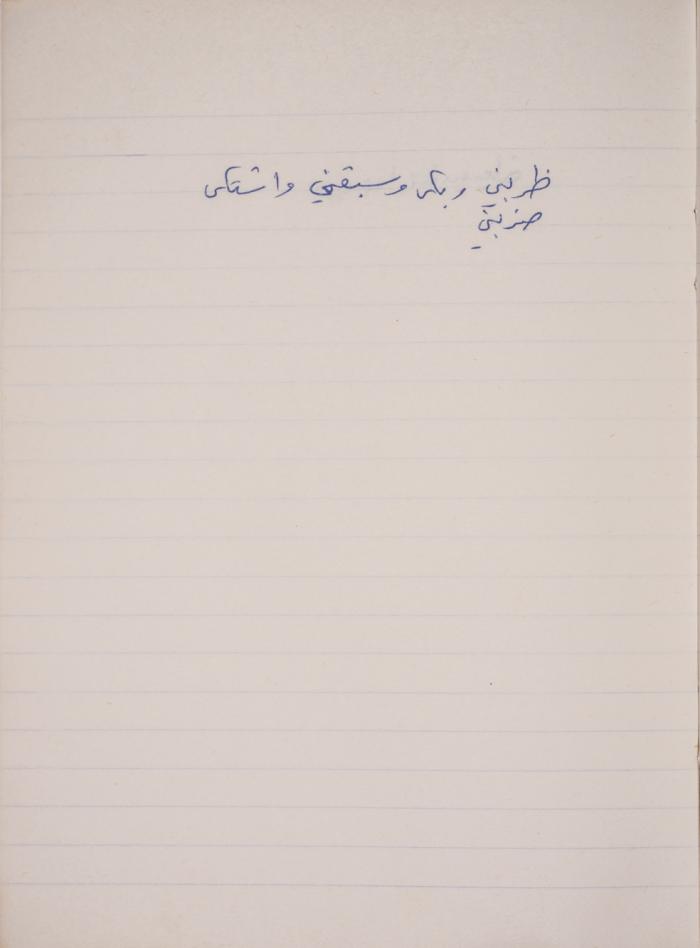 ظربني وبكى وسبقني واشتكى
ضربني